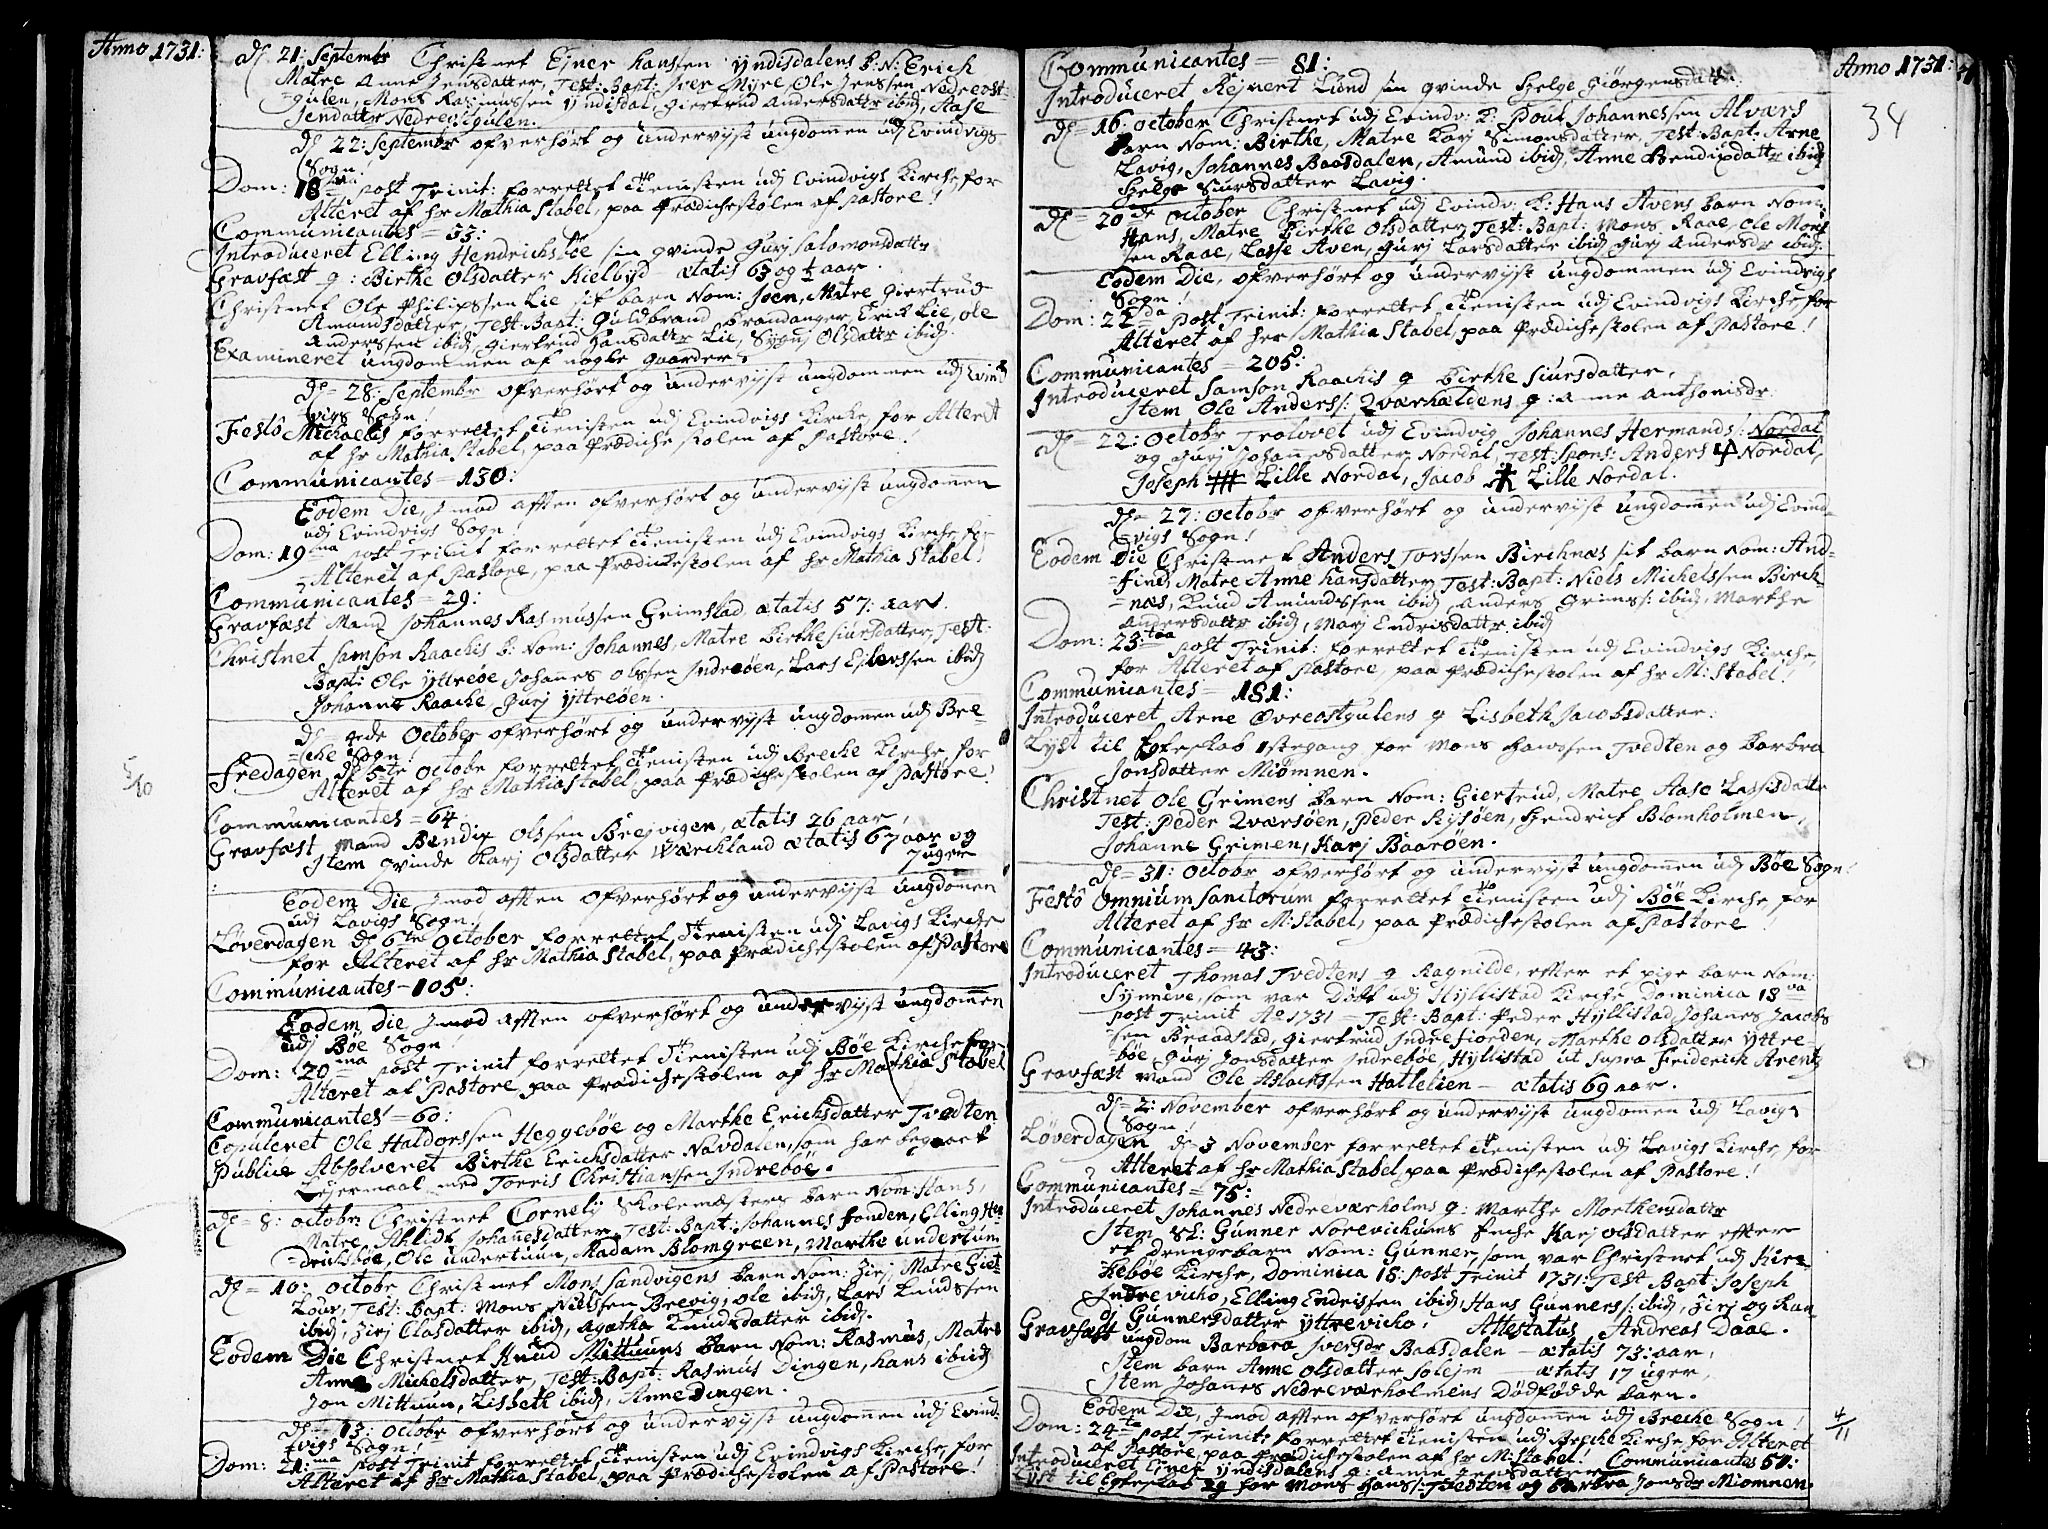 Anno 1731:
d 21: Septembr Christnet Ejner hanssen Yndisdalens b: N: Erich
Matre Anne Jensdatter, Test: Bapt: Iver Myre, Ole Jenssen Nedreost-
=gulen, Mons Rasmussen Yndisdal, giertrud Andersdattr ibid, Aase
Jendattr Nedreostgulen.
d 22: Septembr ofverhørt og undervijst ungdommen udj Evindvigs
Sogn.
Dom: 18 post Trinit: forrettet Tienisten udj Evindvigs Kirche, for
Alteret af hr Mathia Stabel, paa Prædichestolen af pastore!
Communicantes = 33:
Introduceret Elling Hendrichsbøe sin qvinde Gurj Salomonsdattr
Gravfæst q: Birthe Olsdatter Kielbyd ætatis 63 og ½ aar.
Christnet Ole Philipssen Lie sit barn Nom: Joen, Matre giertrud
Amundsdatter, Test: Bapt: Guldbrand Brandanger, Erik Lie, ole
Anderssen ibid, giertrud Hansdattr Lie, Sygnj Olsdattr ibid.
Examineret ungdommen af nogle gaarder.
d = 28: Septembr ofverhørt og undervijst ungdommen udj Evind
vigs Sogn!
Festo Michaelis forrettet Tienisten udj Evindvigs Kirche, for Alteret
af hr Mathia Stabel, paa Prædiche stolen af Pastore!
Communicantes = 130:
Eodem Die, Jmod afften ofverhørt og undervijst ungdommen
udj Evindvigs Sogn!
Dom: 19 post Trinit forrettet Tienisten udj Evindvigs Kirche, for
Alteret af Pastore, paa Prædichestolen af hr Mathia Stabel!
Communicantes = 29:
Gravfæst Mand Johannes Rasmussen Grimstad ætatis 57: aar.
Christnet Samson Raachis b: Nom: Johannes, Matre Birthe siursdatter, Test:
Bapt: Ole Yttreøe, Johannes olssen Indreøen, Lars Ellerssen ibid
Johanne Raache Gurj Yttreøen.
d = 4de October ofverhørt og undervijst ungdomen udj Bre-
=che Sogn.
Fredagen d 5te October forrettet Tienisten udj Breche Kirche, for
Alteret af hr Mathia Stabel, paa Prædichestolen af Pastore!
5/10
Communicantes = 64
Gravfæst Mand Bendix Olssen Brejvigen, ætatis 26 aar,
Item qvinde Karj Olsdatter Værckland ætatis 67 aar og
7 uger
Eodem Die Jmod afften ofverhørt og undervijst ungdomen
udj Lavigs Sogn!
Løverdagen d 6te October forrettet Tienisten udj Lavigs Kirche
for Alteret af hr Mathia Stabel, paa Prædichestolen af Pastore
Communicantes = 105:
Eodem Die Jmod afften ofverhørt og undervijst ungdomen
udj Bøe Sogn!
Dom: 20ma post Trinit forrettet Tienisten udj Bøe Kirche for
Alteret af Pastore, paa Prædichestolen af hr Mathia Stabel
Communicantes = 60:
Copuleret Ole Haldorssen Heggebøe og Marthe Erichsdatter Tvedten
Publice Absolveret Birthe Erichsdatter Navdalen, som har begaaet
Lejermaal med Torris Christiansen Indrebøe.
d = 8: octobr Christnet Cornelij Skolemæsters barn Nom: Hans,
Matre Ahlidt Johanesdatter, Test: Bapt: Johannes fonden, Elling Hen
drichsbøe, Ole undertuun, Madam Blomgreen, Marthe undertuun
d = 10: octobr Christnet Mons Sandvigens barn Nom: Zirj, Matre Giet-
Lour, Test: Bapt: Mons Nielssen Brevig, ole ibid, Lars Knudssen
ibid, Zirj Clasdatter ibid, Agatha Knudsdatter ibid.
Eodem Die Christnet Knud Mittuuns barn Nom: Rasmus, Matre
Anne Michelsdatter, Test: Bapt: Rasmus Dingen, hans ibid
Jon Mittuun, Lisbeth ibid, Anne Dingen.
d = 13: Octobr ofverhørt og undervijst ungdommen udj Evind-
vigs Sogn!
Dom: 21:ma post Trinit forrettet Tienisten udj Evindvigs Kirche, for
Alteret af hr Mathia Stabel, paa Prædichestolen af Pastore!
Anno 1731:
34
Communicantes = 81:
Introduceret Rejnert Lund sin qvinde Helge Giørgensdattr.
d = 16: October Christnet udj Evindv: K: Poul Johannessen Alværs
barn Nom: Birthe, Matre Karj Simonsdatter, Test: Bapt: Arne
Lavig, Johannes Baasdalen, Amund ibid, Anne Bendixdattr ibid
Helge Siursdatter Lavig.
d = 20de October Christnet udj Evindv: K: Hans Avens barn Nom:
Hans, Matre Birthe Olsdatter, Test: Bapt: Mons Raae, Ole Mons
sen Raae, Lasse Aven, Gurj Larsdatter ibid, Gurj Andersdr ibid.
Eodem Die, ofverhørt og undervijst ungdommen udj Evindvigs
Sogn!
Dom: 22da post Trinit: forrettet Tienisten udj Evindvigs Kirche, for
Alteret af her Mathia Stabel, paa Prædichestolen af Pastore!
Communicantes = 205:
Introduceret Samson Raachis q Birthe Siursdatter,
Item Ole Anderss: Qværhælens q: Anne Anthonisdr.
d = 22: Octobr Trolovet udj Evindvig Johannes Hermands: Nordal
og Gurj Johanesdatter Nordal, Test: Spons: Anders Nordal,
Joseph Lille Nordal, Jacob Lille Nordal.
d = 27: Octobr ofverhørt og undervijst ungdomen udj Evind-
vigs Sogn!
Eodem Die Christnet Anders Torssen Birchnæs sit barn Nom: And-
=find, Matre Anne hansdatter, Test: Bapt: Niels Michelssen Birch
=næs, Knud Amundssen ibid, Anders Grims: ibid, Marthe
Andersdattr ibid, Marj Endrisdattr ibid
Dom: 23:tia post Trinit: forrettet Tienisten udj Evindvigs Kirche,
for Alteret af Pastore, paa Prædichestolen af hr M: Stabel!
Communicantes = 181:
Introduceret Arne Øvreostgulens q Lisbeth Jacobsdatter.
Lyst til Ecteskab 1stegang for Mons Hanssen Tvedten og Barbra
Jonsdatter Miømnen.
Christnet Ole Grimens barn Nom: Giertrud, Matre Aase Lassisdattr
Test: Peder Qværsøen, Peder Rysøen, Hendrich Blomholmen,
Johanne Grimen, Karj Baarøen.
d = 31: Octobr ofverhørt og undervijst ungdomen udj Bøe Sogn!
Festo Omnium Sanctorum forrettet Tienisten udj Bøe Kirche for
Alteret af hr M: Stabel, paa Prædichestolen af Pastore!
Communicantes = 43:
Introduceret Thomas Tvedtens q Ragnilde, efter et pige barn Nom:
Synneve, som var Døbt udj Hyllistad Kirche Dominica 18va
post Trinit Ao 1731 = Test: Bapt: Peder Hyllistad, Johanes Jacobs
sen Braadstad, giertrud Indrefiorden, Marthe olsdatter Yttre-
=bøe Gurj Jonsdatter Indrebøe, Hyllistad ut supra Friderich Arentz
Gravfæst Mand Ole Aslachssen Hattelien - ætatis 69 aar.
d = 2: November ofverhørt og undervijst ungdomen udj Lavigs
Sogn!
Løverdagen d 3 November forrettet Tienisten udj Lavigs Kirche, for
Alteret af hr Mathia Stabel, paa Prædichestolen af Pastore!
Communicantes = 75:
Introduceret Johannes Nedreværholms q: Marthe Morthensdattr
Item Sl: Gunner Norevichums Enche Karj olsdatter efter
et Drengebarn Nom: Gunner, som var Christnet udj Kir-
kebøe Kirche, Dominica 18: post Trinit 1731: Test Bapt: Joseph
Indrevicho, Elling Endrissen ibid, Hans Gunners: ibid, Zirj og Ran
di Gunnersdatter Yttrevicho. Attestatus Andreas Daae.
Gravfæst ungdom Barbara Iversdr Baasdalen - ætatis 73: aar,
Item barn Anne Olsdatter Solejm ætatis 17 uger,
Item Johannes Nedreværholmens Dødfødde barn.
Eodem Die, Jmod afften ofverhørt ungdomen udj Breche Sogn!
Dom: 24te post Trinit: forrettet Tienisten udj Breche Kirche for Alteret
4/11
af Pastore, paa Prædichestolen af hr M: Stabel. Communicantes 57:
Introduceret Einer Yndisdalens q: Anne Jensdatter
Lyst til Ecteskab 2g for Mons Hanss: Tvedten og Barbra Jonsdr Miømnen.